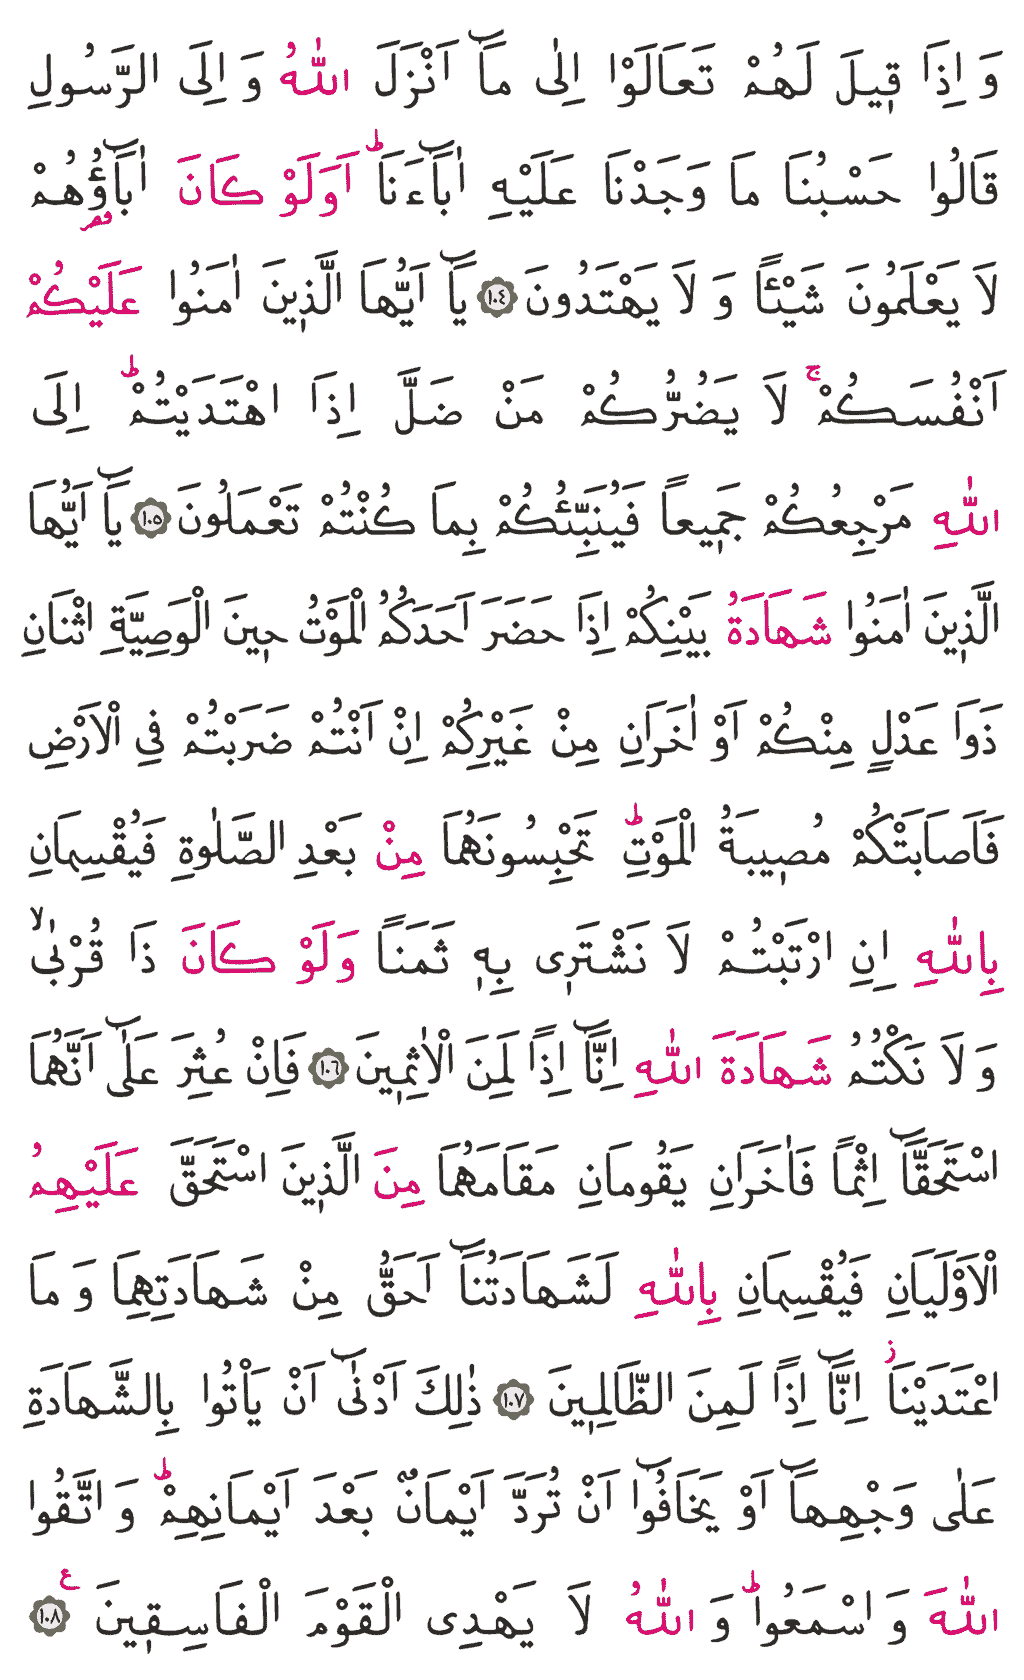 وَ اِذَا قٖيلَ لَهُمْ تَعَالَوْا اِلٰى مَٓا اَنْزَلَ اللّٰهُ وَ اِلَى الرَّسُولِ
قَالُوا حَسْبُنَا مَا وَجَدْنَا عَلَيْهِ اٰبَٓاءَنَاؕ اَوَلَوْ كَانَ اٰبَٓاؤُ۬هُمْ
لَا يَعْلَمُونَ شَيْـًٔا وَ لَا يَهْتَدُونَ ١٠٤ يَٓا اَيُّهَا الَّذٖينَ اٰمَنُوا عَلَيْكُمْ
اَنْفُسَكُمْۚ لَا يَضُرُّكُمْ مَنْ ضَلَّ اِذَا اهْتَدَيْتُمْؕ اِلَى
اللّٰهِ مَرْجِعُكُمْ جَمٖيعًا فَيُنَبِّئُكُمْ بِمَا كُنْتُمْ تَعْمَلُونَ ١٠٥ يَٓا اَيُّهَا
الَّذٖينَ اٰمَنُوا شَهَادَةُ بَيْنِكُمْ اِذَا حَضَرَ اَحَدَكُمُ الْمَوْتُ حٖينَ الْوَصِيَّةِ اثْنَانِ
ذَوَا عَدْلٍ مِنْكُمْ اَوْ اٰخَرَانِ مِنْ غَيْرِكُمْ اِنْ اَنْتُمْ ضَرَبْتُمْ فِى الْاَرْضِ
فَاَصَابَتْكُمْ مُصٖيبَةُ الْمَوْتِؕ تَحْبِسُونَهُمَا مِنْ بَعْدِ الصَّلٰوةِ فَيُقْسِمَانِ
بِاللّٰهِ اِنِ ارْتَبْتُمْ لَا نَشْتَرٖى بِهٖ ثَمَنًا وَلَوْ كَانَ ذَا قُرْبٰىۙ
وَ لَا نَكْتُمُ شَهَادَةَ اللّٰهِ اِنَّٓا اِذًا لَمِنَ الْاٰثِمٖينَ ١٠٦ فَاِنْ عُثِرَ عَلٰٓى اَنَّهُمَا
اسْتَحَقَّٓا اِثْمًا فَاٰخَرَانِ يَقُومَانِ مَقَامَهُمَا مِنَ الَّذٖينَ اسْتَحَقَّ عَلَيْهِمُ
الْاَوْلَيَانِ فَيُقْسِمَانِ بِاللّٰهِ لَشَهَادَتُنَٓا اَحَقُّ مِنْ شَهَادَتِهِمَا وَ مَا
اعْتَدَيْنَاؗ اِنَّٓا اِذًا لَمِنَ الظَّالِمٖينَ ١٠٧ ذٰلِكَ اَدْنٰٓى اَنْ يَاْتُوا بِالشَّهَادَةِ
عَلٰى وَجْهِهَٓا اَوْ يَخَافُٓوا اَنْ تُرَدَّ اَيْمَانٌ بَعْدَ اَيْمَانِهِمْؕ وَ اتَّقُوا
اللّٰهَ وَ اسْمَعُواؕ وَ اللّٰهُ لَا يَهْدِى الْقَوْمَ الْفَاسِقٖينَ ع ١٠٨